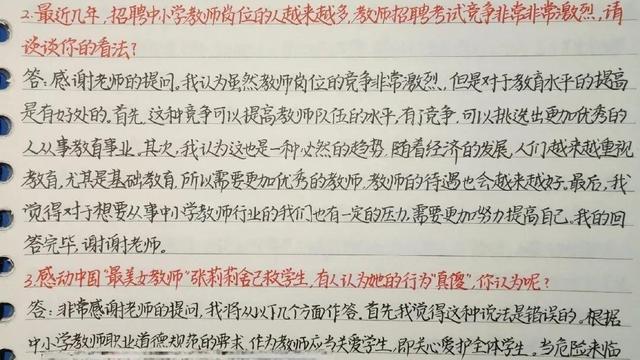 2.最近几年,招聘中小学教师岗位的人越来越多,教师招聘考试竞争非常非常激烈,请
谈谈你的看法?
答:感谢老师的提问。我认为虽然教师岗位的竞争非常激烈,但是对于教育水平的提高
是有好处的。首先,这种竞争可以提高教师队伍的水平,有了竞争,可以挑选出更加优秀的
人从事教育事业。其次,我认为这也是一种必然的趋势,随着经济的发展,人们越来越重视
教育,尤其是基础教育,所以需要更加优秀的教师,教师的待遇也会越来越好。最后,我
觉得对于想要从事中小学教师行业的我们也有一定的压力,需要更加努力提高自己。我的回
答完毕,谢谢老师。
3.感动中国"最美女教师"张莉莉舍己救学生,有人认为她的行为"真傻",你认为呢?
答:非常感谢老师的提问,我将从以下几个方面作答。首先我觉得这种说法是错误的。根据
中小学教师职业道德规范的要求,作为教师应当关爱学生,即关心爱护全体学生,当危险来临